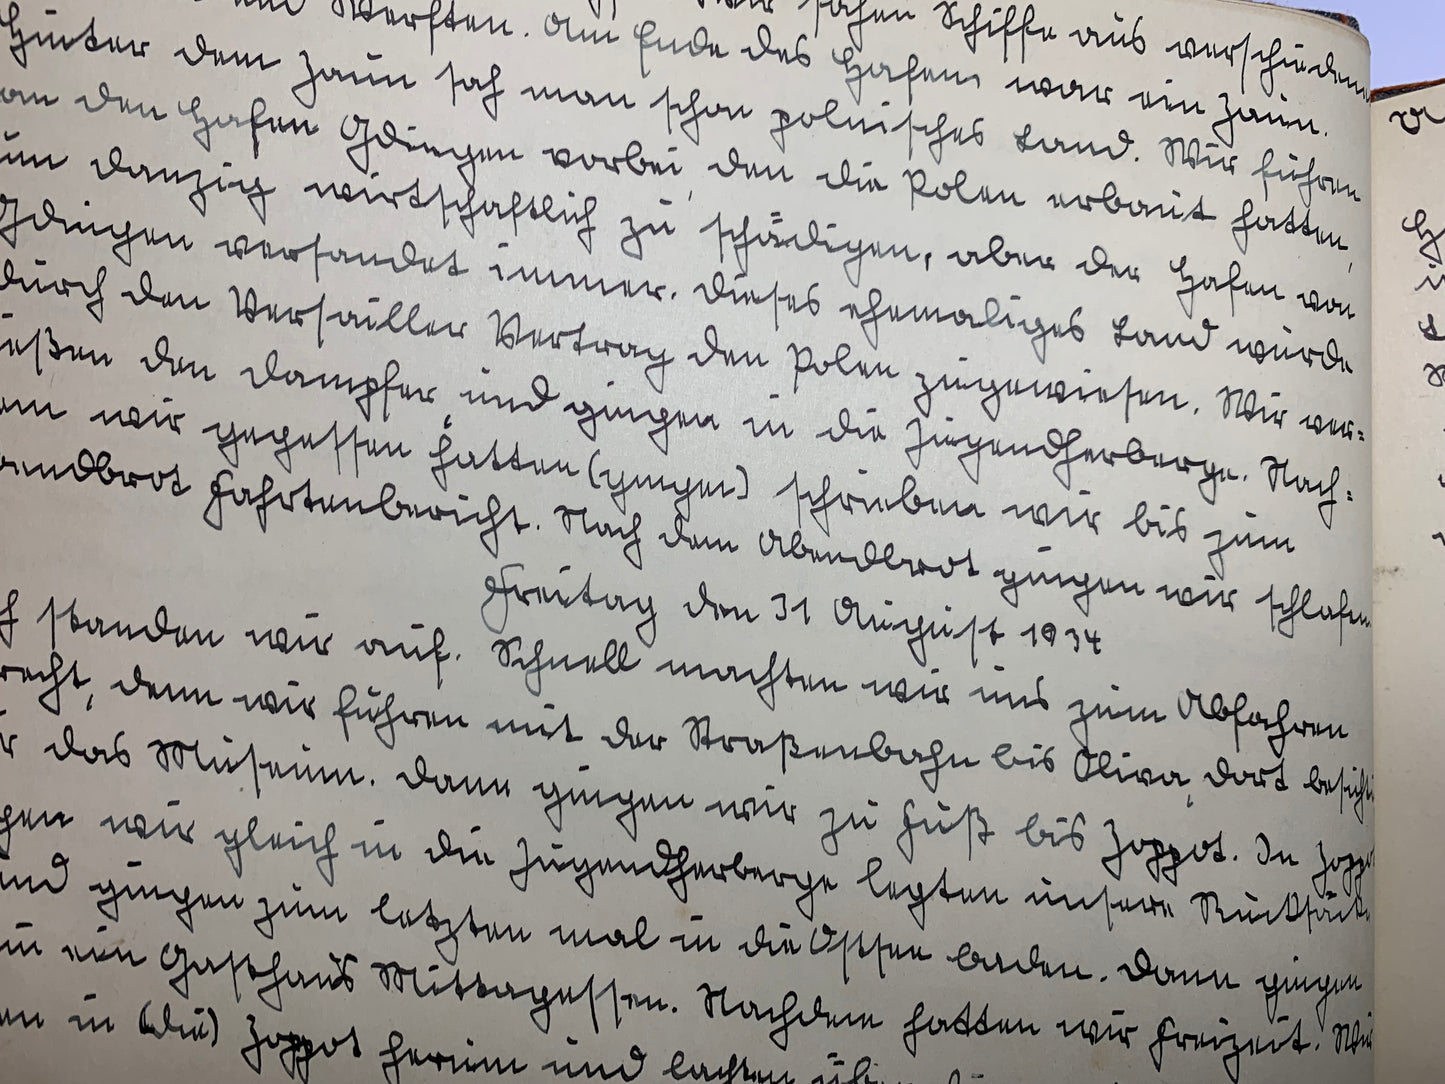 und Werften. Wir sahen Schiffe aus verschieden
Hinter dem Zaun sah man schon polnisches Land. Wir fuhren
Am Ende des Hafens war ein Zaun.
an den Hafen Gdingen vorbei, den die Polen erbaut hatten,
um Danzig wirtschaftlich zu schädigen, aber der Hafen von
Gdingen versandet immer. Dieses ehemaliges Land wurde
durch den Versailler Vertrag den Polen zugewiesen. Wir ver=
ießen den Dampfer, und gingen in die Jugendherberge. Nach=
em wir gegessen hatten (gingen) schrieben wir bis zum
bendbrot Fahrtenbericht. Nach dem Abendbrot gingen wir schlafen
Freitag den 31 August 1934
h standen wir auf. Schnell machten wir uns zum Abfahren
recht, denn wir fuhren mit der Straßenbahn bis Oliva, dort besichti
r das Museum. Dann gingen wir zu Fuß bis Zoppot. In Zoppo
gen wir gleich in die Jugendherberge legten unsere Rucksäcke
und gingen zum letzten mal in die Ostsee baden. Dann gingen
in ein Gasthaus Mittagessen. Nachdem hatten wir Freizeit. Wir
en in (die) Zoppot herum und lachten